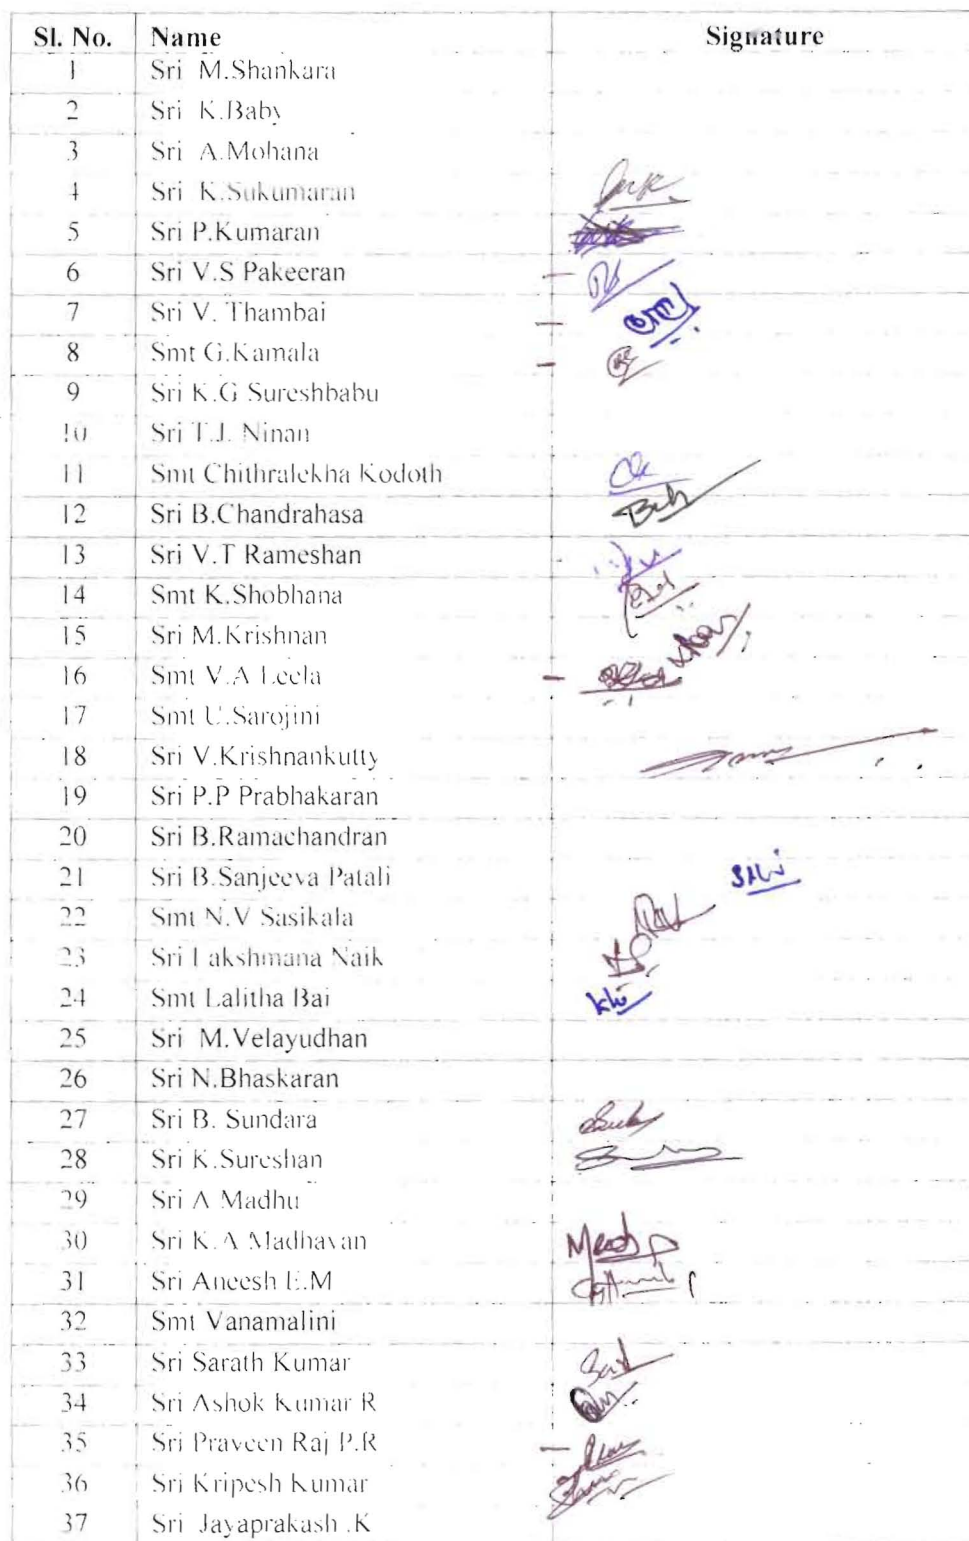 Sl. No. Name Signature
1 Sri M.Shankara
2 Sri K.Baby
3 Sri A.Mohana
4 Sri K.Sukumaran
5 Sri P.Kumaran
6 Sri V.S Pakeeran
7 Sri V. Thambai
8 Smt G.Kamala
9 Sri K.G Sureshbabu
10 Sri T.J. Ninan
11 Smt Chithralekha Kodoth
12 Sri B.Chandrahasa
13 Sri V.T Rameshan
14 Smt K.Shobhana
15 Sri M.Krishnan
16 Smt V.A Leela
17 Smt U.Sarojini
18 Sri V.Krishnankutty
19 Sri P.P Prabhakaran
20 Sri B.Ramachandran
21 Sri B.Sanjeeva Patali
22 Smt N.V Sasikala
23 Sri Lakshmana Naik
24 Smt Lalitha Bai
25 Sri M.Velayudhan
26 Sri N.Bhaskaran
27 Sri B. Sundara
28 Sri K.Sureshan
29 Sri A Madhu
30 Sri K.A Madhavan
31 Sri Aneesh E.M
32 Smt Vanamalini
33 Sri Sarath Kumar
34 Sri Ashok Kumar R
35 Sri Praveen Raj P.R
36 Sri Kripesh Kumar
37 Sri Jayaprakash .K